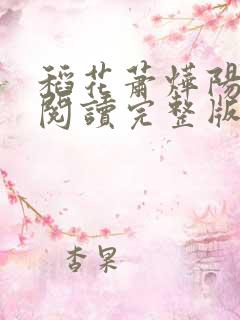 稻花蕭燁陽
閱讀完整版
杏果